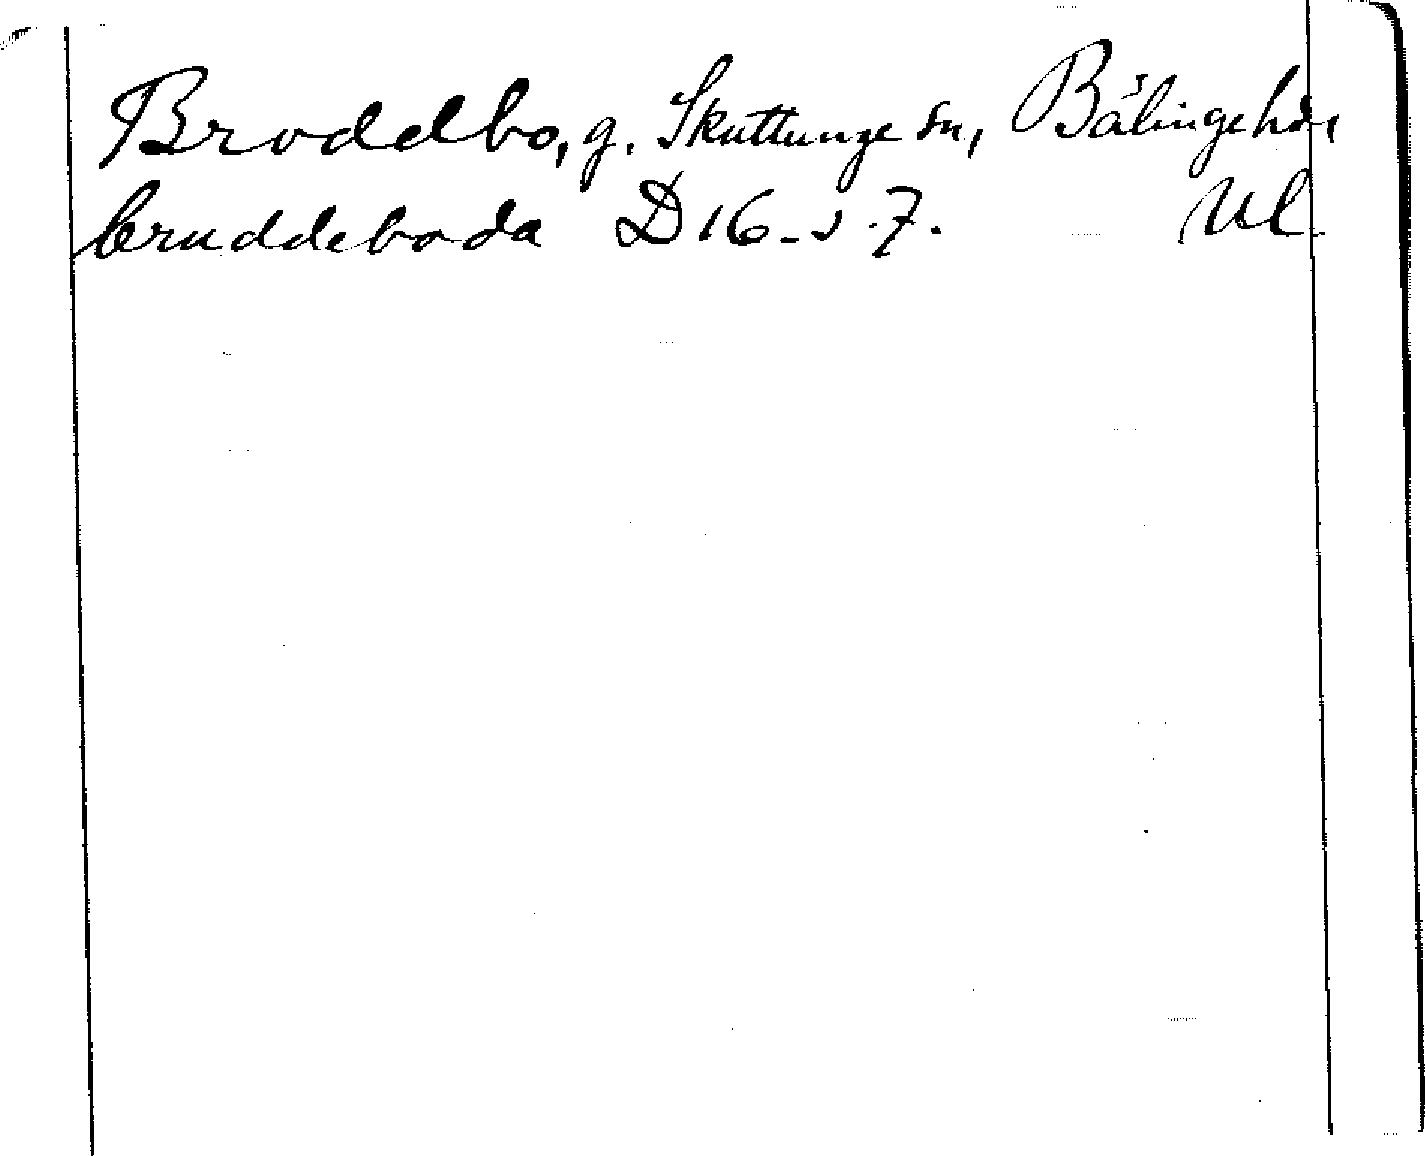 Broddbo, g. Skuttunge sn, Bälinge hd,
bruddeboda D 16 - s. 7. Ul